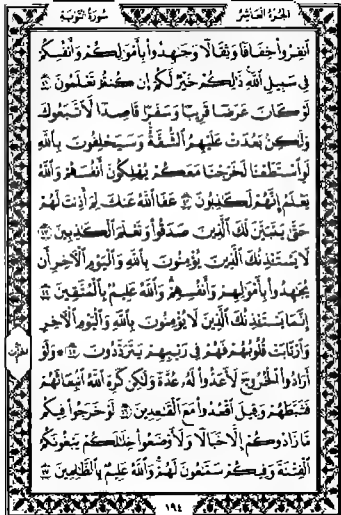 الجزء العاشر سورة التوبة
انفروا خفافا وثقالا وجهدوا بأمولكم وأنفسكم
في سبيل الله ذلكم خير لكم إن كنتم تعلمون ٤١
لو كان عرضا قريبا وسفرا قاصدا لاتبعوك
ولكن بعدت عليهم الشقة وسيحلفون بالله
لو استطعنا لخرجنا معكم يهلكون أنفسهم والله
يعلم إنهم لكذبون ٤٢ عفا الله عنك لم أذنت لهم
حتى يتبين لك الذين صدقوا وتعلم الكذبين ٤٣
لا يستذنك الذين يؤمنون بالله واليوم الآخر أن
يجهدوا بأمولهم وأنفسهم والله عليم بالمتقين ٤٤
إنما يستذنك الذين لا يؤمنون بالله واليوم الآخر
وارتابت قلوبهم فهم في ريبهم يترددون ٤٥ ولو
أرادوا الخروج لأعدوا له عدة ولكن كره الله انبعاثهم
فثبطهم وقيل اقعدوا مع القعدين ٤٦ لو خرجوا فيكم
ما زادوكم إلا خبالا ولأوضعوا خللكم يبغونكم
الفتنة وفيكم سمعون لهم والله عليم بالظلمين ٤٧
١٩٤